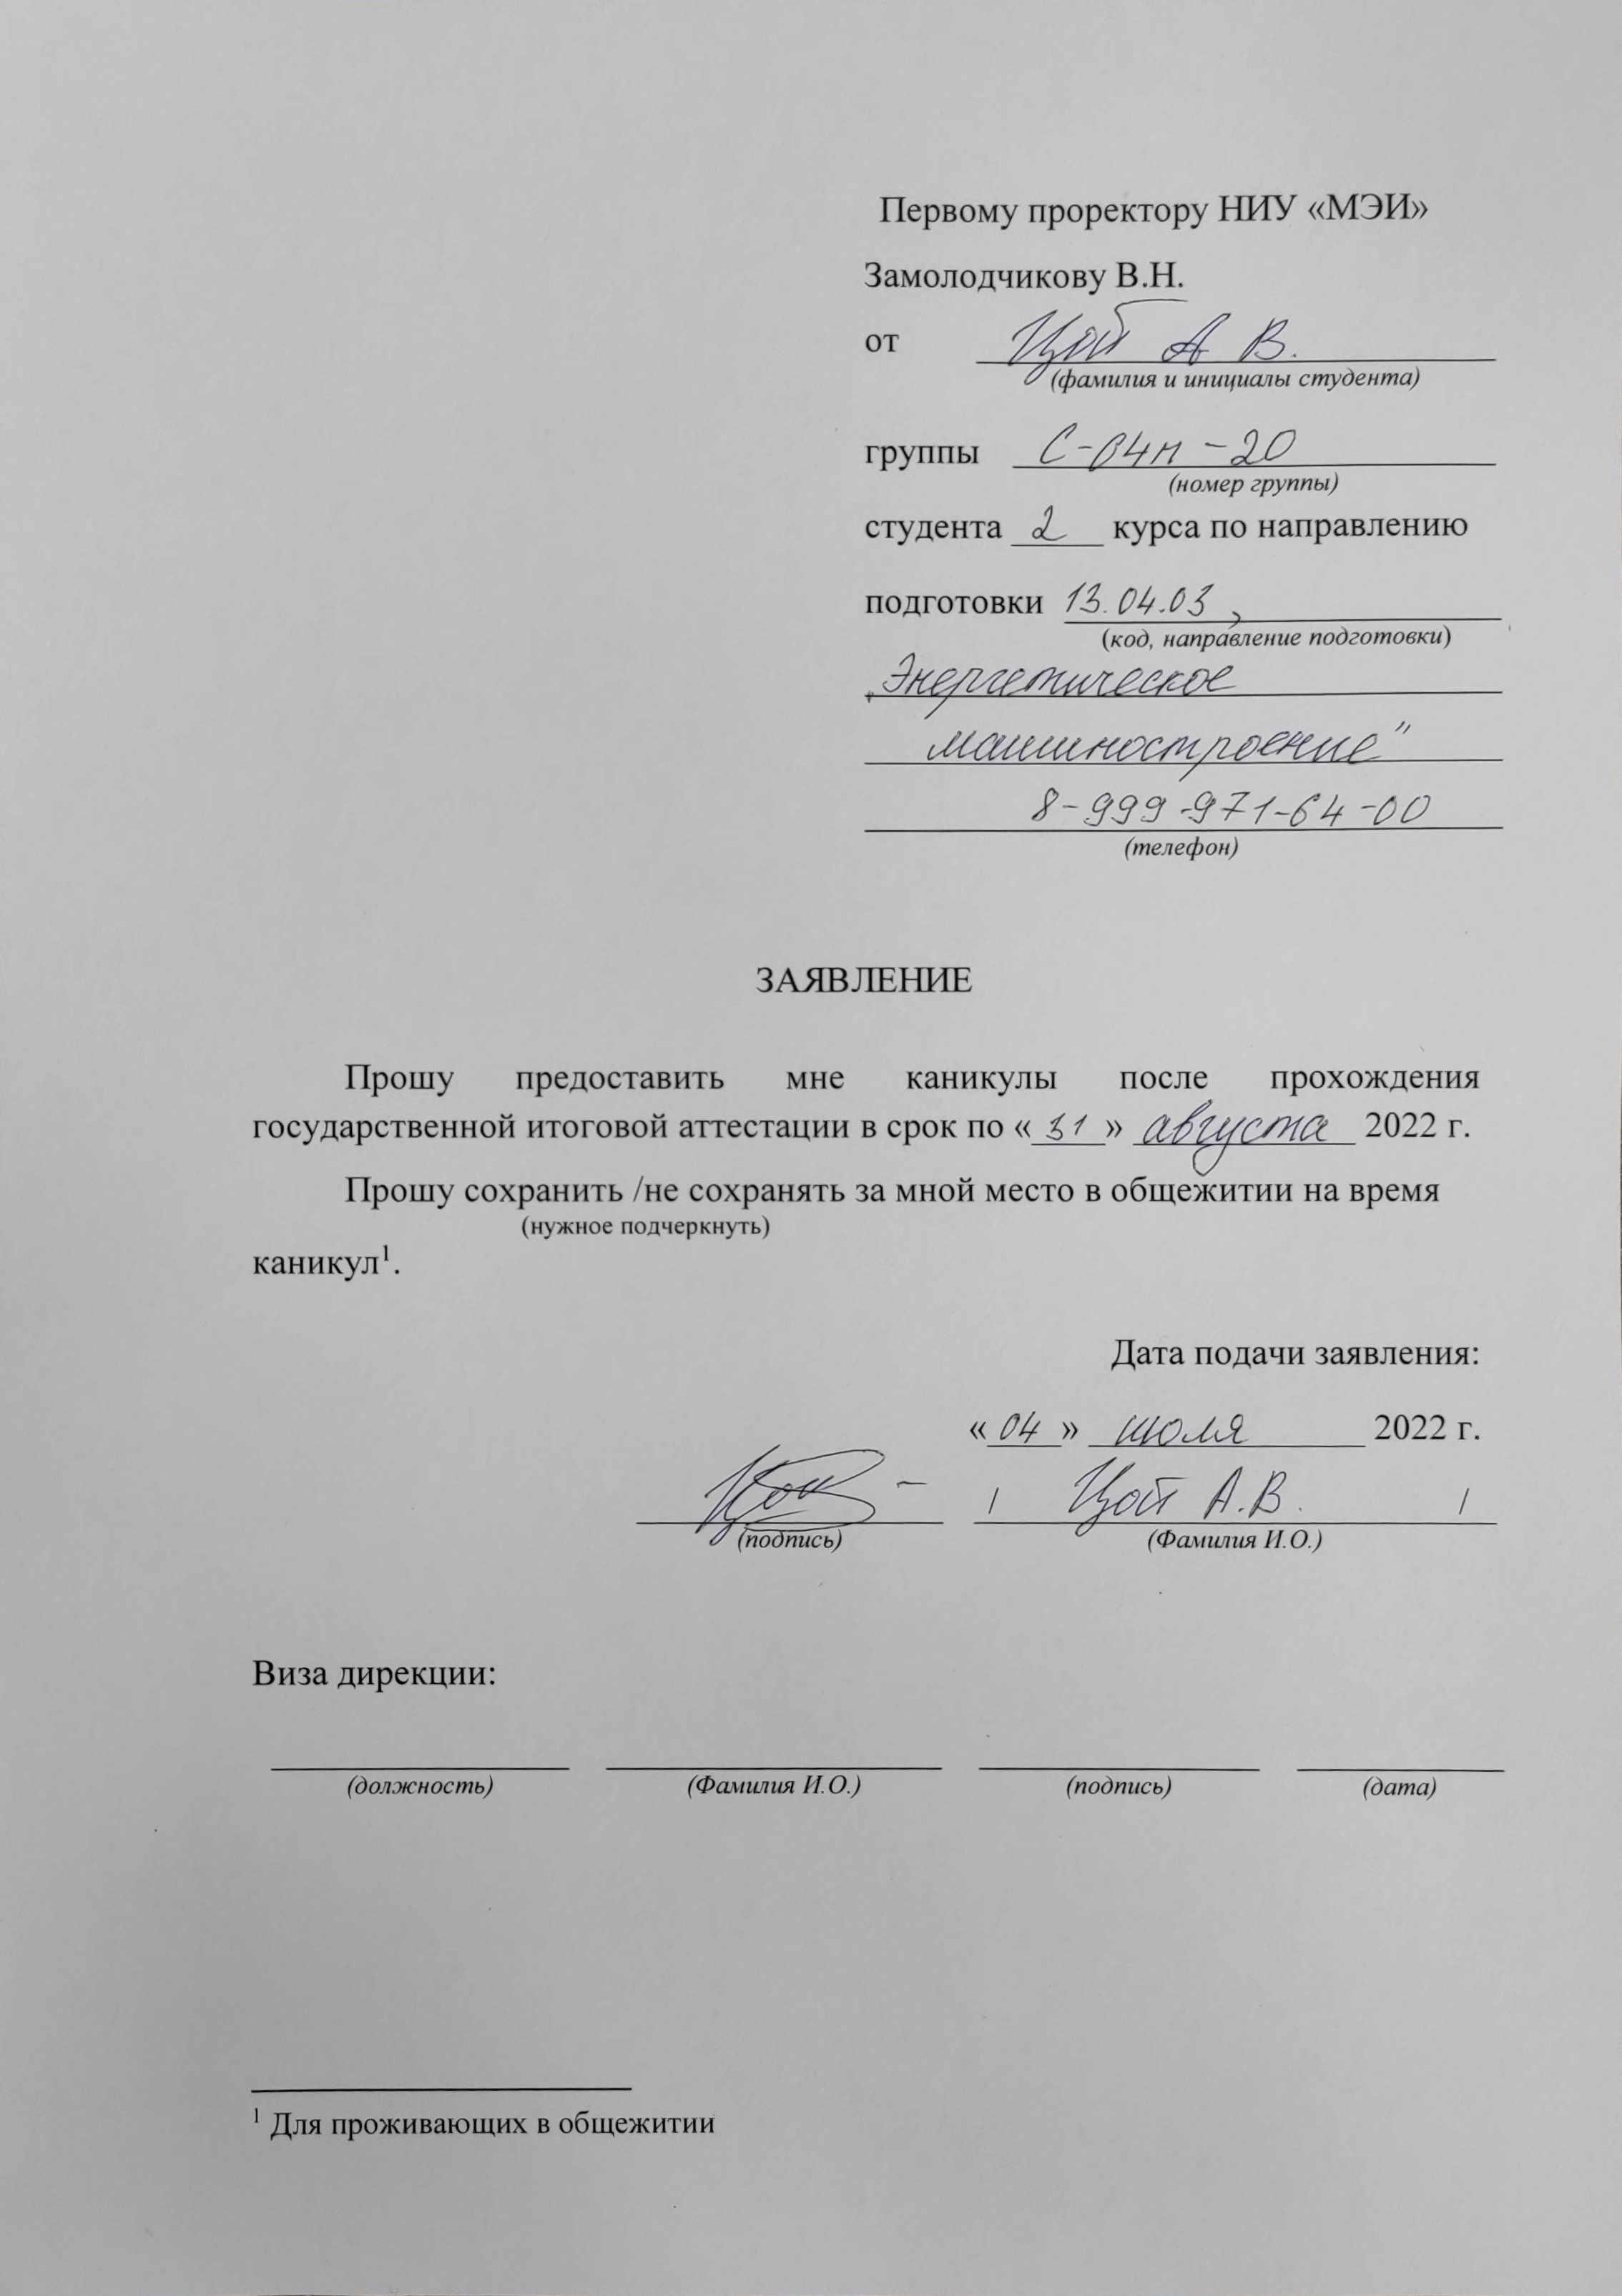 Первому проректору НИУ «МЭИ»
Замолодчикову В.Н.
от Цой А В.
(фамилия и инициалы студента)
группы С-04м-20
(номер группы)
студента 2 курса по направлению
подготовки 13.04.03,
(код, направление подготовки)
„Энергетическое
машиностроение"
8-999-971-64-00
(телефон)
ЗАЯВЛЕНИЕ
Прошу предоставить мне каникулы после прохождения
государственной итоговой аттестации в срок по «31» августа 2022 г.
Прошу сохранить /не сохранять за мной место в общежитии на время
(нужное подчеркнуть)
каникул¹.
Дата подачи заявления:
«04» июля 2022 г.
Цой / Цой А.В. /
(подпись) (Фамилия И.О.)
Виза дирекции:
(должность) (Фамилия И.О.) (подпись) (дата)
¹ Для проживающих в общежитии